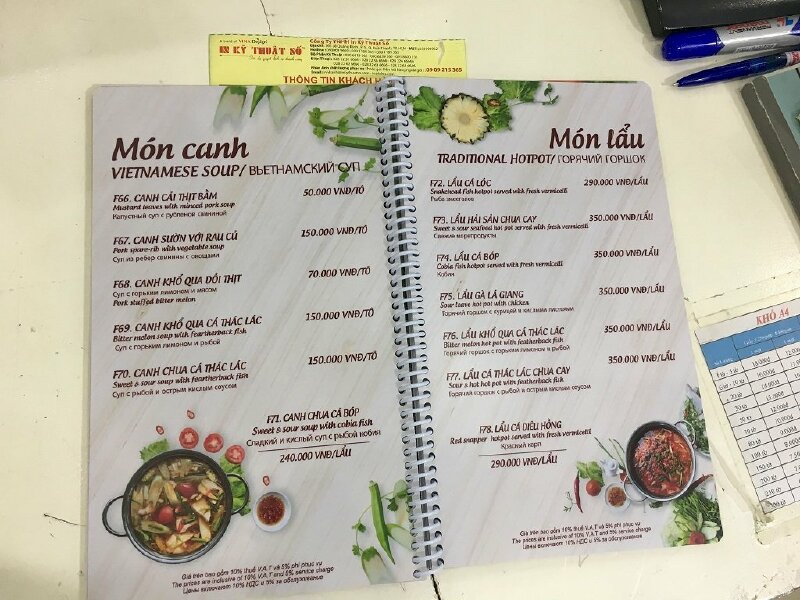 IN KỸ THUẬT SỐ
THÔNG TIN KHÁCH
Món canh
VIETNAMESE SOUP/ ВЬЕТНАМСКИЙ СУП
F66. CANH CẢI THỊT BẰM 50.000 VNĐ/TÔ
Mustard leaves with minced pork soup
Капустный суп с рубленой свининой
F67. CANH SƯỜN VỚI RAU CỦ 150.000 VNĐ/TÔ
Pork spare-rib with vegetable soup
Суп из ребер свинины с овощами
F68. CANH KHỔ QUA DỒI THỊT 70.000 VNĐ/TÔ
Суп с горьким лимоном и мясом
Pork stuffed bitter melon
F69. CANH KHỔ QUA CÁ THÁC LÁC 150.000 VNĐ/TÔ
Bitter melon soup with feartherback fish
Суп с горьким лимоном и рыбой
F70. CANH CHUA CÁ THÁC LÁC 150.000 VNĐ/TÔ
Sweet & sour soup with feartherback fish
Суп с рыбой и острым кислым соусом
F71. CANH CHUA CÁ BÓP
Sweet & sour soup with cobia fish
Сладкий и кислый суп с рыбой кобия
240.000 VNĐ/LẨU
Giá trên bao gồm 10% thuế V.A.T và 5% phí phục vụ
The prices are inclusive of 10% V.A.T and 5% service charge
Цены включают 10% НДС и 5% за обслуживание
Món lẩu
TRADITIONAL HOTPOT/ ГОРЯЧИЙ ГОРШОК
F72. LẨU CÁ LÓC 290.000 VNĐ/LẨU
Snakehead fish hotpot served with fresh vermicelli
Рыба змееголов
F73. LẨU HẢI SẢN CHUA CAY 350.000 VNĐ/LẨU
Sweet & sour seafood hot pot served with fresh vermicelli
Свежие морепродукты
F74. LẨU CÁ BÓP 350.000 VNĐ/LẨU
Cobia fish hotpot served with fresh vermicelli
Кобия
F75. LẨU GÀ LÁ GIANG 350.000 VNĐ/LẨU
Sour leave hot pot with chicken
Горячий горшок с курицей и кислыми листьями
F76. LẨU KHỔ QUA CÁ THÁC LÁC 350.000 VNĐ/LẨU
Bitter melon hot pot with featherback fish
Горячий горшок с горьким лимоном и рыбой
F77. LẨU CÁ THÁC LÁC CHUA CAY 350.000 VNĐ/LẨU
Sour & hot hot pot with featherback fish
Горячий горшок с рыбой и острым кислым соусом
F78. LẨU CÁ DIÊU HỒNG
Red snapper hotpot served with fresh vermicelli
Красный карп
290.000 VNĐ/LẨU
Giá trên bao gồm 10% thuế V.A.T và 5% phí phục vụ
The prices are inclusive of 10% V.A.T and 5% service charge
Цены включают 10% НДС и 5% за обслуживание
KHỔ A4